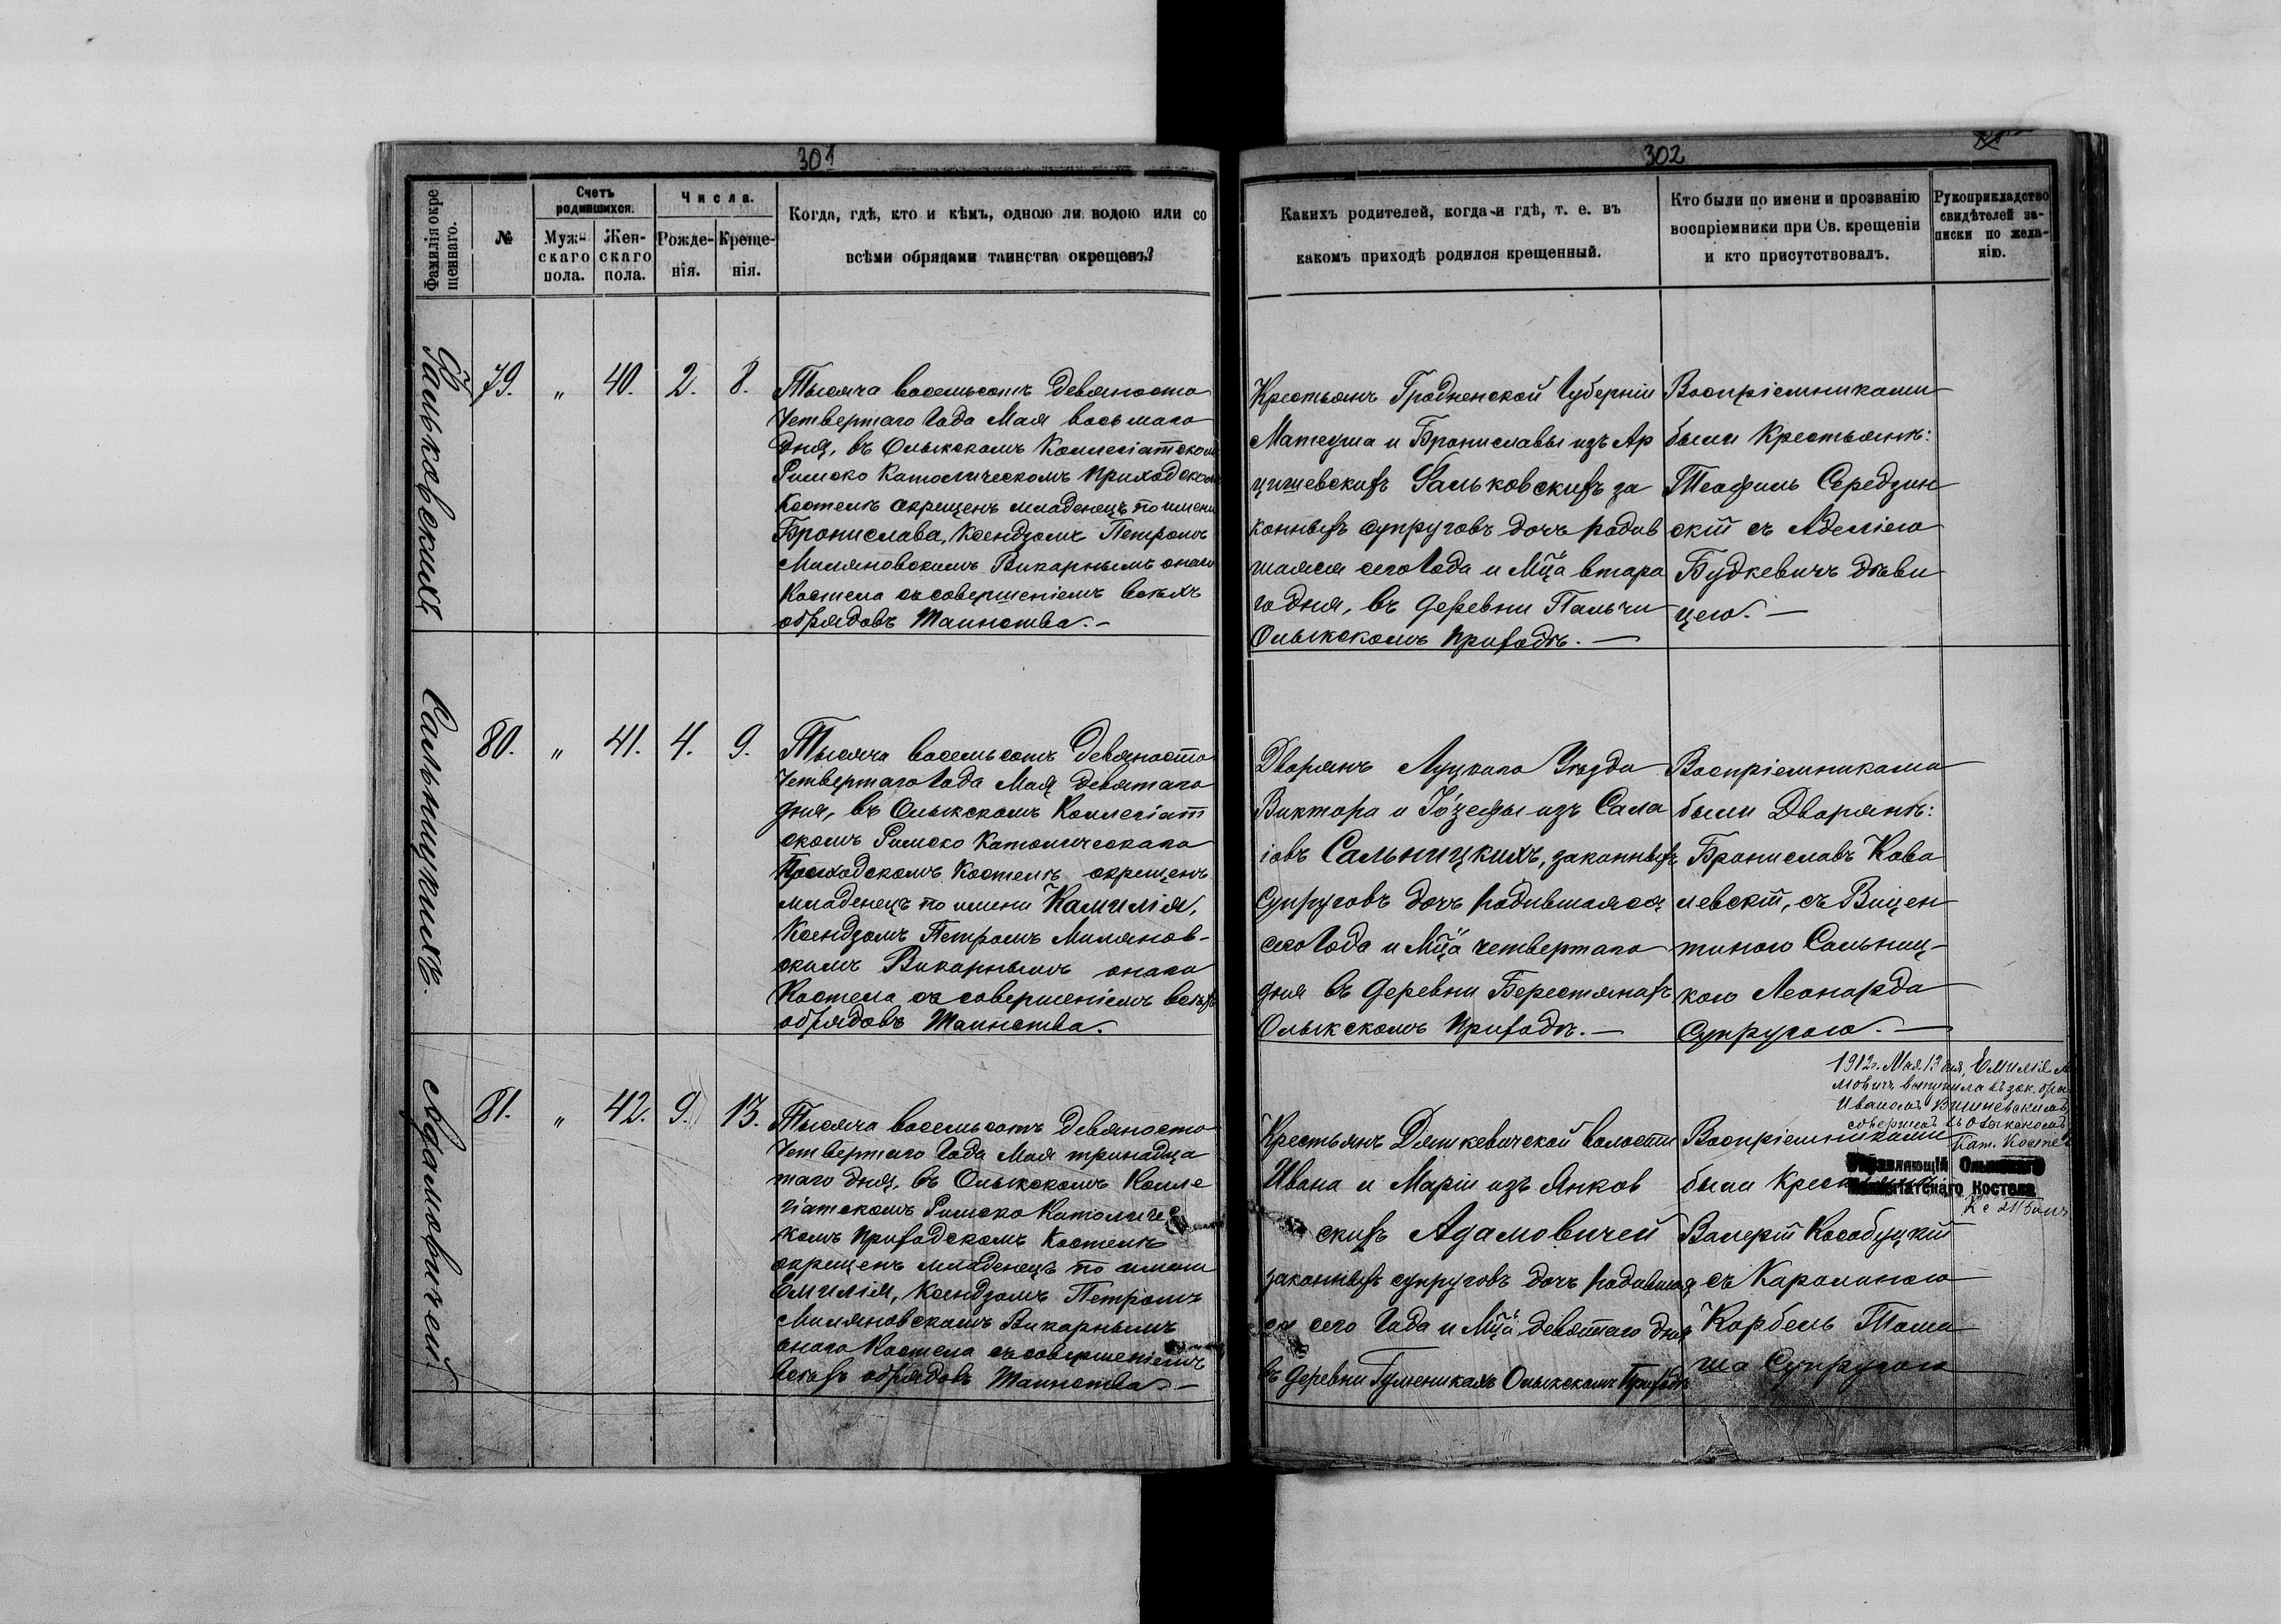 301
Фамилія окре
щеннаго.
№
Счетъ
родившихся.
Муж-
скаго
пола.
Жен-
скаго
пола.
Числа.
Рожде-
нія.
Креще-
нія.
Когда, гдѣ, кто и кѣмъ, одною ли водою или со
всѣми обрядами таинства окрещенъ?
Фальковскихъ
79.
„
40.
2.
8.
Тысяча восемьсотъ девяносто
Четвертаго Года Мая восьмаго
дня, въ Олыкскомъ Коллегіатскомъ
Римско Католическомъ Приходскомъ
Костелѣ окрещенъ младенецъ по имени
Бронислава, Ксендзомъ Петромъ
Миляновскимъ Викарнымъ онаго
Костела съ совершеніемъ всѣхъ
обрядовъ Таинства.-
Сальницкихъ.
80.
„
41.
4.
9.
Тысяча восемьсотъ девяносто
Четвертаго Года Мая девятаго
дня, въ Олыкскомъ Коллегіат
скомъ Римско Католическаго
Приходскомъ Костелѣ окрещенъ
младенецъ по имени Камилія,
Ксендзомъ Петромъ Милянов-
скимъ Викарнымъ онаго
Костела съ совершеніемъ всѣхъ
обрядовъ Таинства.
Адамовичей
81.
„
42.
9.
13.
Тысяча восемьсотъ девяносто
Четвертаго Года Мая тринадца
таго дня, въ Олыкскомъ Колле
гіатскомъ Римско Католичес
комъ Приходскомъ Костелѣ
окрещенъ младенецъ по имени
Емилія, Ксендзомъ Петромъ
Миляновскимъ Викарнымъ
онаго Костела съ совершеніемъ
всѣхъ обрядовъ Таинства.-
302
Какихъ родителей, когда и гдѣ, т. е. въ
какомъ приходѣ родился крещенный.
Кто были по имени и прозванію
воспріемники при Св. крещеніи
и кто присутствовалъ.
Рукоприкладство
свидѣтелей за-
писки по жела-
нію.
Крестьянъ Гродненской Губерніи
Матеуша и Брониславы изъ Ар
цишевскихъ Фальковскихъ за
конныхъ супруговъ дочь родив
шаяся сего Года и Мца втора
го дня, въ деревни Пальчи
Олыкскомъ Приходѣ.—
Воспріемниками
были Крестьянѣ:
Теофиль Середзин
скій съ Аделіею
Будкевичъ дѣви
цею.—
Дворянъ Луцкаго Уѣзда
Виктора и Іозефы изъ Сала
іовъ Сальницкихъ, законныхъ
Супруговъ дочь родившаяся
сего Года и Мца четвертаго
дня въ деревни Берестянахъ
Олыкскомъ Приходѣ.—
Воспріемниками
были Дворянѣ:
Брониславъ Кова
левскій, съ Вицен
тиною Сальниц-
кою Леонарда
Супругою.—
Крестьянъ Дяткевичской волости
Ивана и Маріи изъ Янков
скихъ Адамовичей
законныхъ супруговъ дочь родившая
ся сего Года и Мца девятаго дня
въ деревни Гуменикахъ Олыкскомъ Приходѣ
Воспріемниками
были Крест
Валерій Кособуцкій
съ Каролиною
Корбель Тома
ша Супругою
1912г. Мая 13 дня, Емилія А
мовичъ вступила въ зак. бра
Иваномъ Вишневскимъ,
совершод. въ Олыкскомъ
Кат. Косте
Управляющій Олыкскаго
Костела